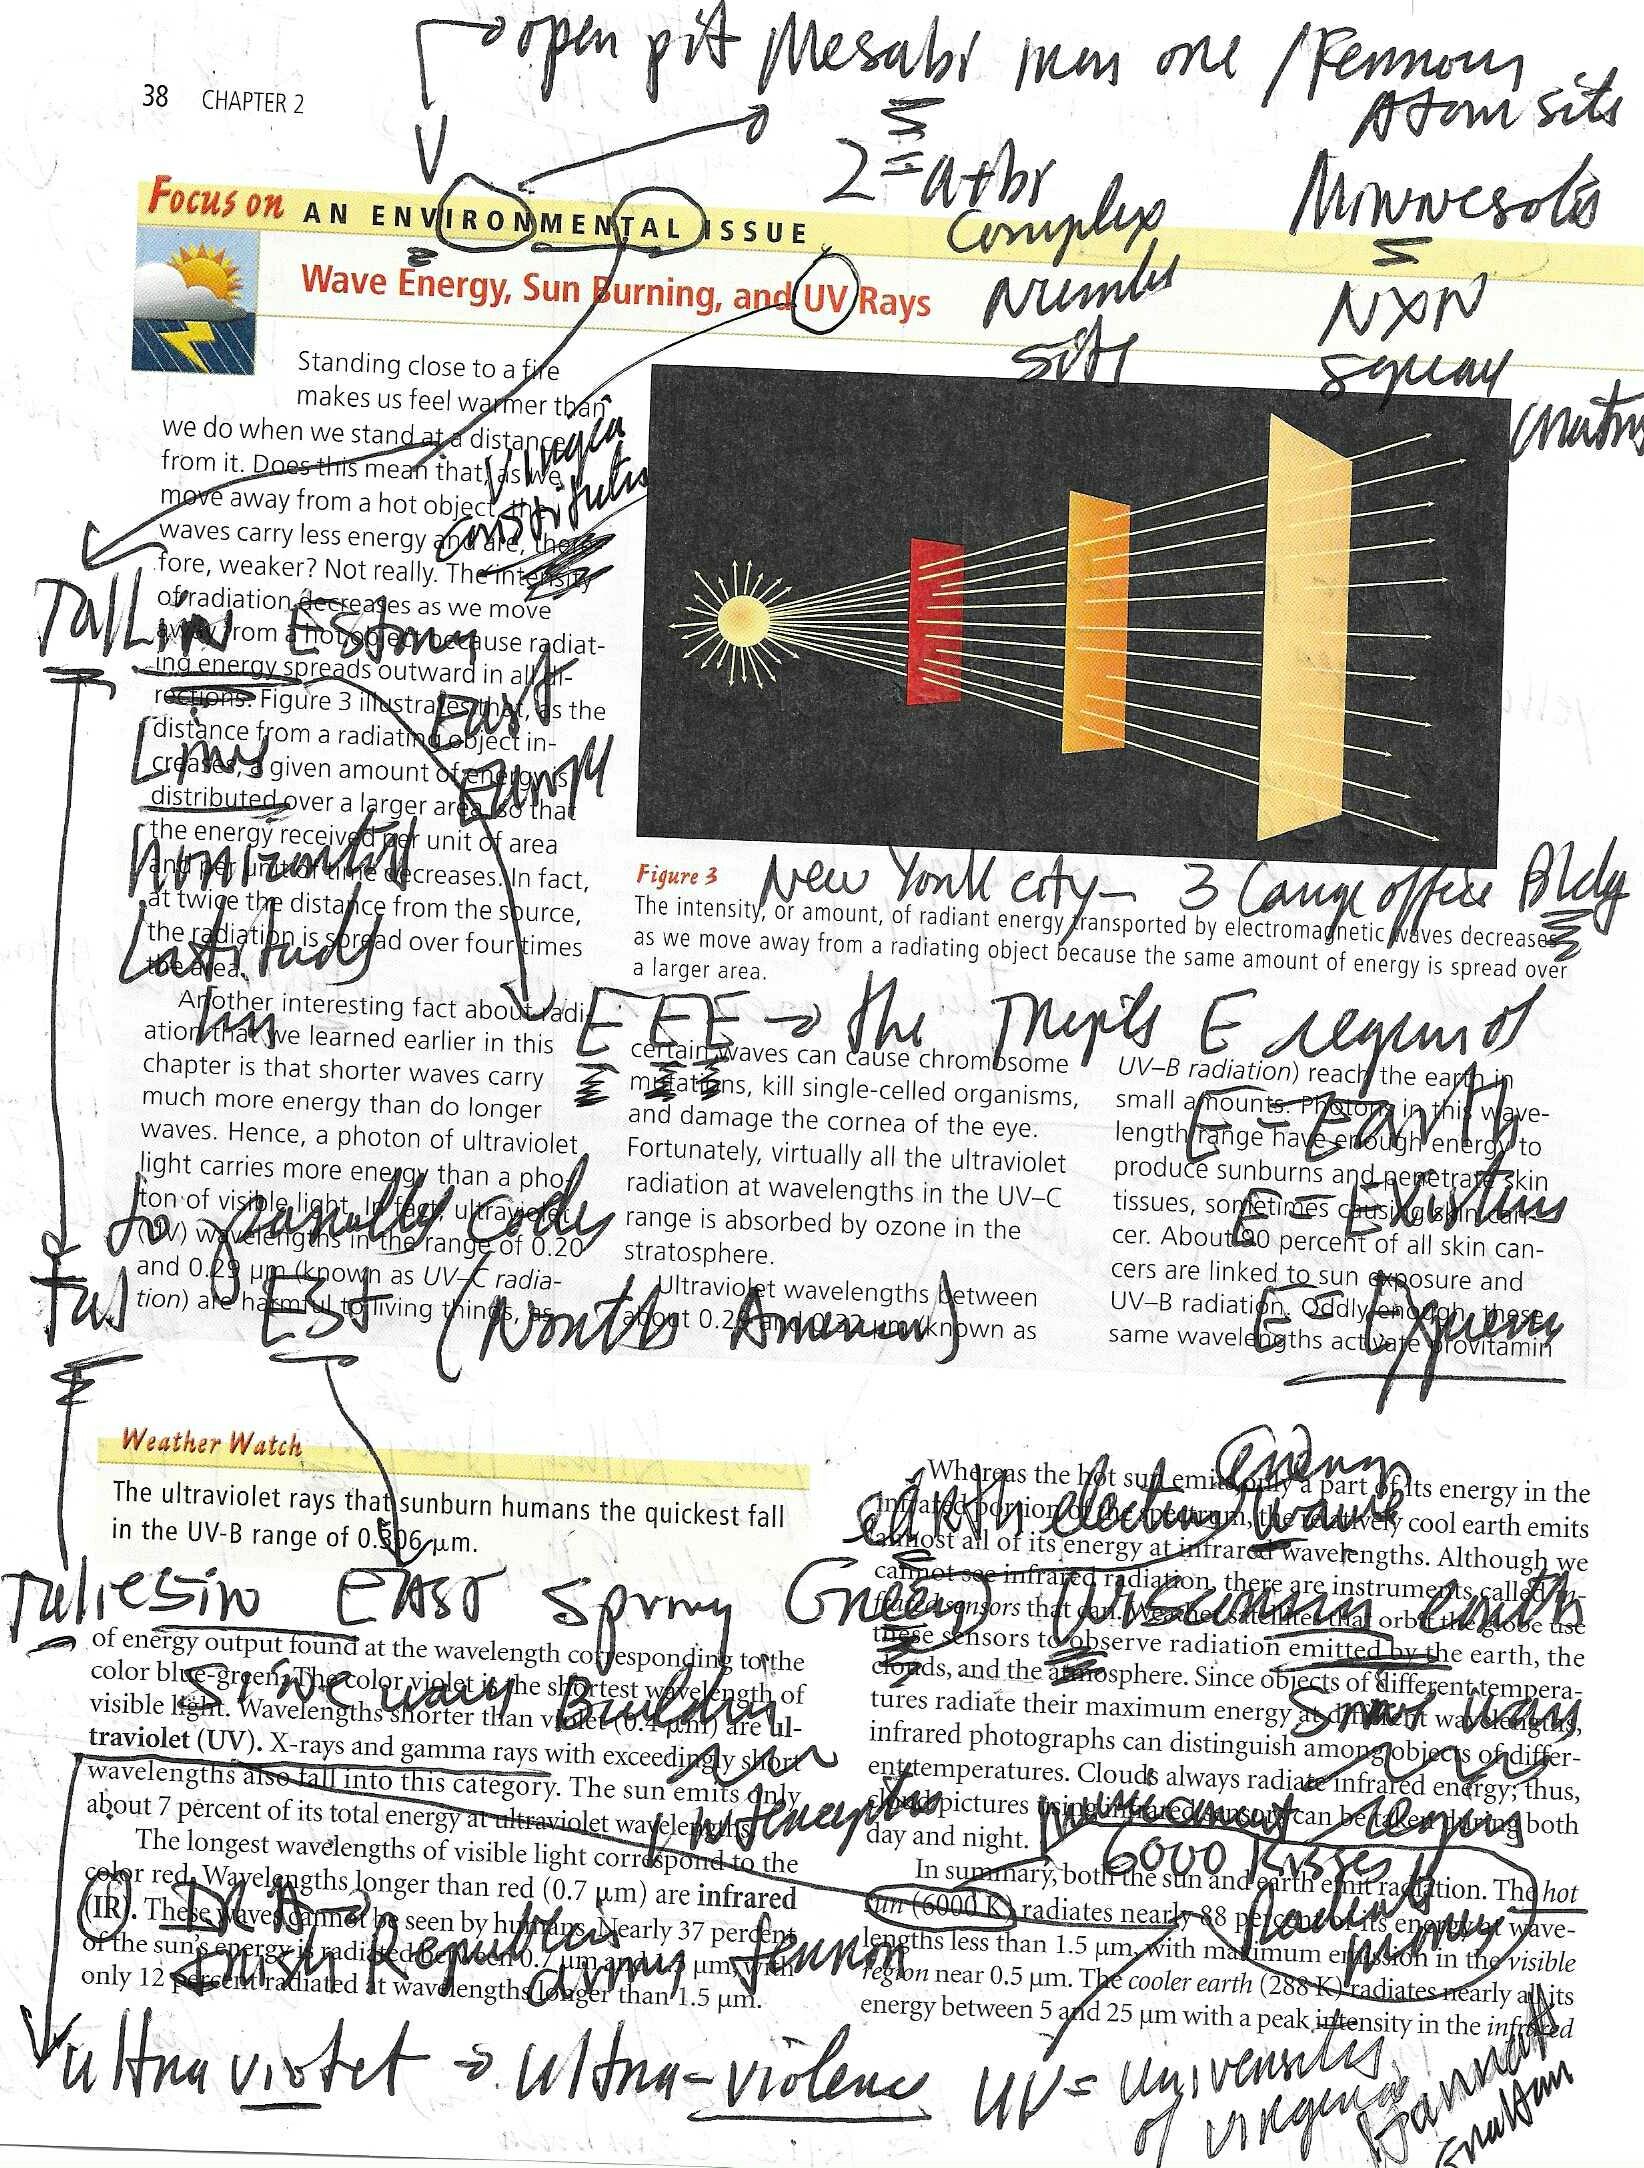 open pit Mesabi iron ore / Ferrous
Atom site
38 CHAPTER 2
2 = a+bi
Complex
Number
site
Minnesota
NXN
square
matrix
Focus on AN ENVIRONMENTAL ISSUE
Wave Energy, Sun Burning, and UV Rays
Standing close to a fire
makes us feel warmer than
we do when we stand at a distance
from it. Does this mean that, as we
move away from a hot object, the
waves carry less energy and are, there-
fore, weaker? Not really. The intensity
of radiation decreases as we move
away from a hot object because radiat-
ing energy spreads outward in all di-
rections. Figure 3 illustrates that, as the
distance from a radiating object in-
creases, a given amount of energy is
distributed over a larger area, so that
the energy received per unit of area
and per unit of time decreases. In fact,
at twice the distance from the source,
the radiation is spread over four times
the area.
Another interesting fact about radi-
ation that we learned earlier in this
chapter is that shorter waves carry
much more energy than do longer
waves. Hence, a photon of ultraviolet
light carries more energy than a pho-
ton of visible light. In fact, ultraviolet
(UV) wavelengths in the range of 0.20
and 0.29 μm (known as UV–C radia-
tion) are harmful to living things, as
Virginia
constitutes
TalLinn Estony
East
Europe
Lines
horizontal
Latitudes
to proually Code
EST (North America)
Figure 3
New York city – 3 Large office Bldg
The intensity, or amount, of radiant energy transported by electromagnetic waves decreases
as we move away from a radiating object because the same amount of energy is spread over
a larger area.
E E E → the Triple E region of
E = EARTH
E = Existens
certain waves can cause chromosome
mutations, kill single-celled organisms,
and damage the cornea of the eye.
Fortunately, virtually all the ultraviolet
radiation at wavelengths in the UV–C
range is absorbed by ozone in the
stratosphere.
Ultraviolet wavelengths between
about 0.29 and 0.32 μm (known as
UV–B radiation) reach the earth in
small amounts. Photons in this wave-
length range have enough energy to
produce sunburns and penetrate skin
tissues, sometimes causing skin can-
cer. About 90 percent of all skin can-
cers are linked to sun exposure and
UV–B radiation. Oddly enough, these
same wavelengths activate provitamin
Weather Watch
The ultraviolet rays that sunburn humans the quickest fall
in the UV-B range of 0.306 μm.
Energy
earth electing wave
Taliessin EAST Spring Green Wisconsin earth
Sinecuary Building
Sinus Ways
of energy output found at the wavelength corresponding to the
color blue-green. The color violet is the shortest wavelength of
visible light. Wavelengths shorter than violet (0.4 μm) are ul-
traviolet (UV). X-rays and gamma rays with exceedingly short
wavelengths also fall into this category. The sun emits only
about 7 percent of its total energy at ultraviolet wavelengths.
The longest wavelengths of visible light correspond to the
color red. Wavelengths longer than red (0.7 μm) are infrared
(IR). These waves cannot be seen by humans. Nearly 37 percent
of the sun's energy is radiated between 0.7 μm and 1.5 μm, with
only 12 percent radiated at wavelengths longer than 1.5 μm.
Irish Republics
army terror
Whereas the hot sun emits only a part of its energy in the
infrared portion of the spectrum, the relatively cool earth emits
almost all of its energy at infrared wavelengths. Although we
cannot see infrared radiation, there are instruments called in-
frared sensors that can. Weather satellites that orbit the globe use
these sensors to observe radiation emitted by the earth, the
clouds, and the atmosphere. Since objects of different tempera-
tures radiate their maximum energy at different wavelengths,
infrared photographs can distinguish among objects of differ-
ent temperatures. Clouds always radiate infrared energy; thus,
cloud pictures using infrared sensors can be taken during both
day and night.
In summary, both the sun and earth emit radiation. The hot
sun (6000 K) radiates nearly 88 percent of its energy at wave-
lengths less than 1.5 μm, with maximum emission in the visible
region near 0.5 μm. The cooler earth (288 K) radiates nearly all its
energy between 5 and 25 μm with a peak intensity in the infrared
6000 Kisses
Radiant
money
ultra violet → ultra-violence UV = Universities
of Virginia